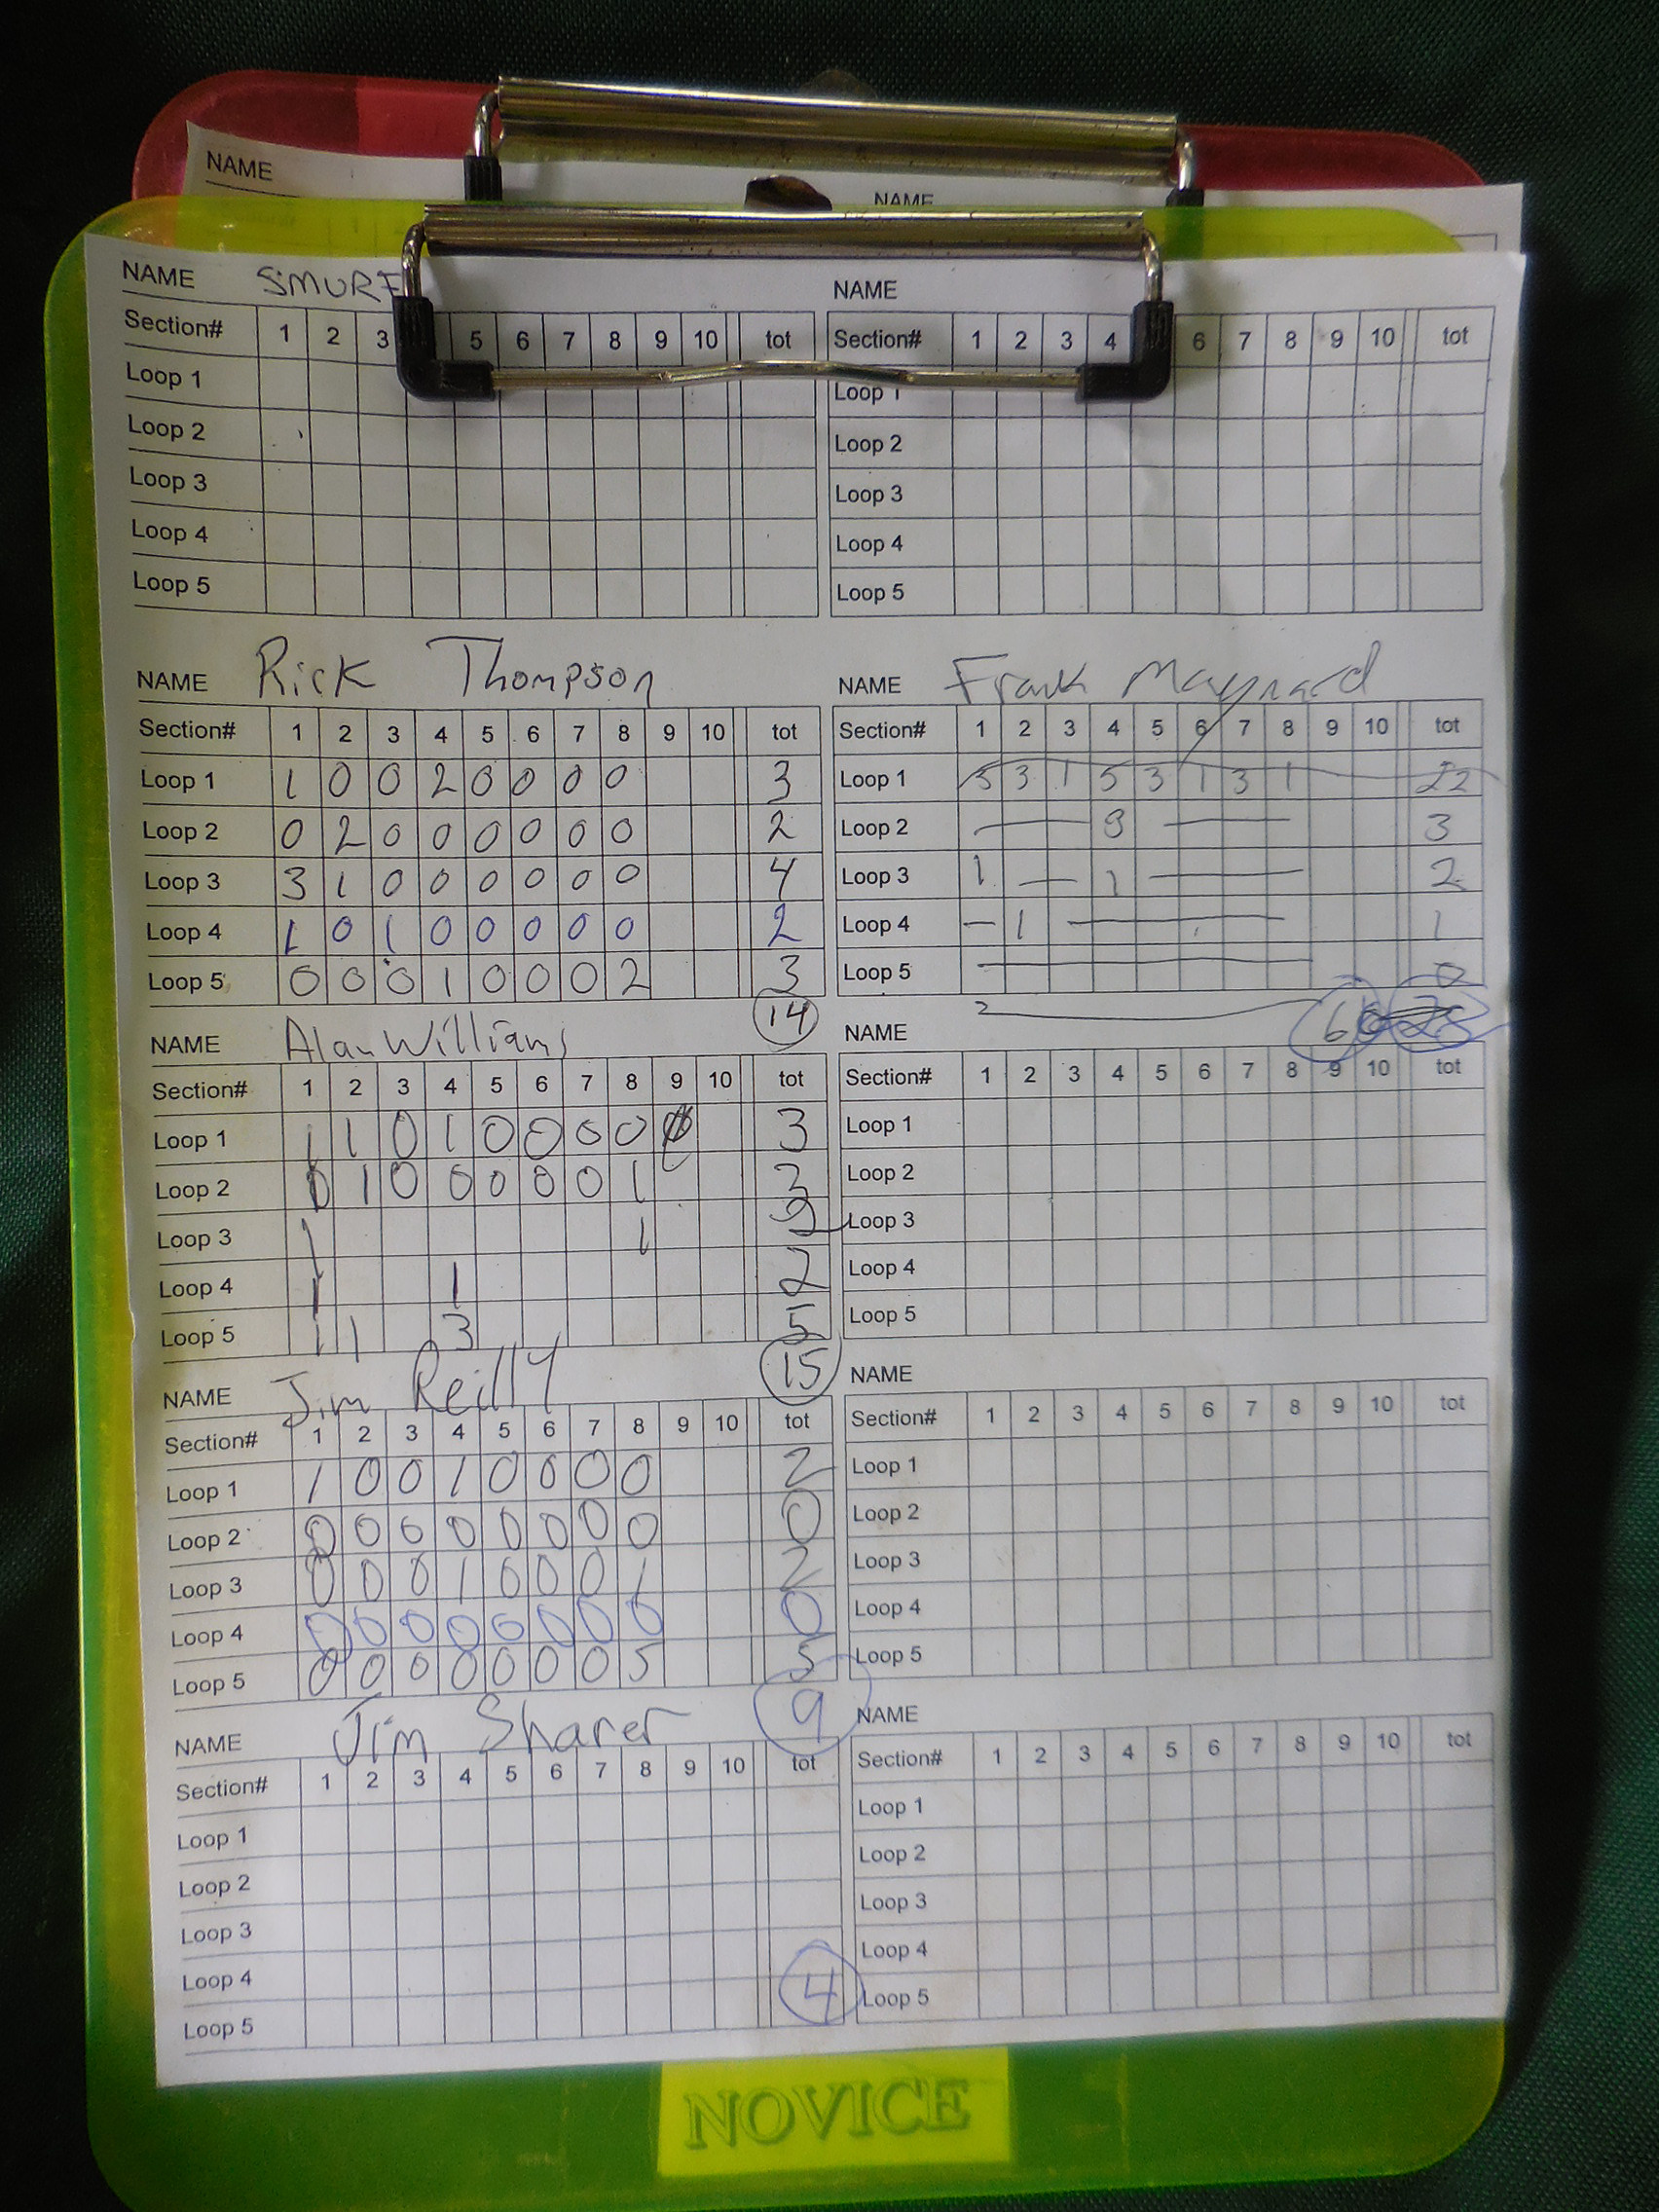 NAME
NAME
NAME SMURF
Section# 1 2 3 5 6 7 8 9 10 tot
Loop 1
Loop 2
Loop 3
Loop 4
Loop 5
NAME
Section# 1 2 3 4 6 7 8 9 10 tot
Loop 1
Loop 2
Loop 3
Loop 4
Loop 5
NAME Rick Thompson
Section# 1 2 3 4 5 6 7 8 9 10 tot
Loop 1 1 0 0 2 0 0 0 0 3
Loop 2 0 2 0 0 0 0 0 0 2
Loop 3 3 1 0 0 0 0 0 0 4
Loop 4 1 0 1 0 0 0 0 0 2
Loop 5 0 0 0 1 0 0 0 2 3
14
NAME Frank Maynard
Section# 1 2 3 4 5 6 7 8 9 10 tot
Loop 1 5 3 1 5 3 1 3 1 22
Loop 2 — 3 — 3
Loop 3 1 — 1 — 2
Loop 4 — 1 — 1
Loop 5 — 0
6
NAME Alan Williams
Section# 1 2 3 4 5 6 7 8 9 10 tot
Loop 1 1 1 0 1 0 0 0 0 3
Loop 2 1 0 0 0 0 0 1 3
Loop 3 1 1 2
Loop 4 1 1 2
Loop 5 1 1 3 5
15
NAME
Section# 1 2 3 4 5 6 7 8 9 10 tot
Loop 1
Loop 2
Loop 3
Loop 4
Loop 5
NAME Jim Reilly
Section# 1 2 3 4 5 6 7 8 9 10 tot
Loop 1 1 0 0 1 0 0 0 0 2
Loop 2 0 0 0 0 0 0 0 0 0
Loop 3 0 0 0 1 0 0 0 1 2
Loop 4 0 0 0 0 0 0 0 0 0
Loop 5 0 0 0 0 0 0 0 5 5
9
NAME
Section# 1 2 3 4 5 6 7 8 9 10 tot
Loop 1
Loop 2
Loop 3
Loop 4
Loop 5
NAME Jim Sharer
Section# 1 2 3 4 5 6 7 8 9 10 tot
Loop 1
Loop 2
Loop 3
Loop 4
Loop 5
4
NAME
Section# 1 2 3 4 5 6 7 8 9 10 tot
Loop 1
Loop 2
Loop 3
Loop 4
Loop 5
NOVICE